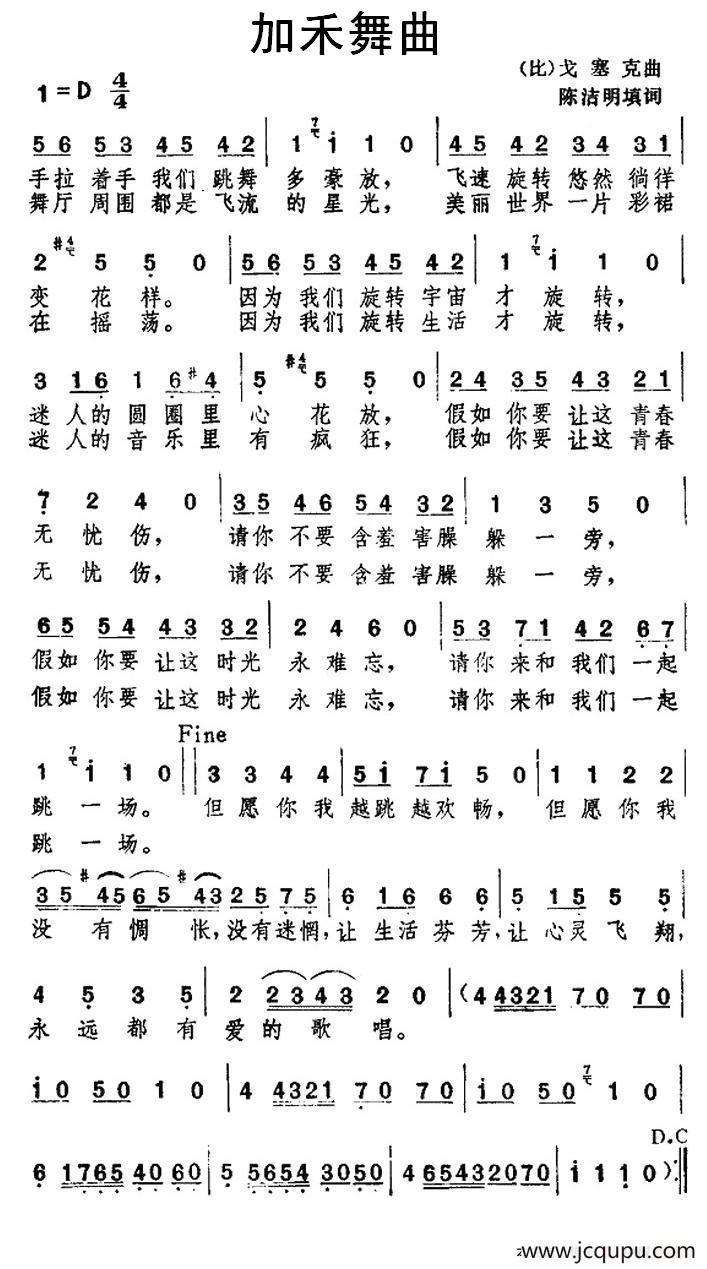 加禾舞曲
1=D 4/4
(比)戈 塞 克曲
陈洁明填词
56 53 45 42 | 1 i 1 0 | 45 42 34 31 |
手拉着手我们跳舞 多豪放, 飞速旋转悠然徜徉
舞厅周围都是飞流 的星光, 美丽世界一片彩裙
2 5 5 0 | 56 53 45 42 | 1 i 1 0 |
变花样。 因为我们旋转宇宙 才旋转,
在摇荡。 因为我们旋转生活 才旋转,
3 16 1 6#4 | 5 5 5 0 | 24 35 43 21 |
迷人的圆圈里 心花放, 假如你要让这青春
迷人的音乐里 有疯狂, 假如你要让这青春
7 2 4 0 | 35 46 54 32 | 1 3 5 0 |
无忧伤, 请你不要含羞害臊 躲一旁,
无忧伤, 请你不要含羞害臊 躲一旁,
65 54 43 32 | 2 4 6 0 | 53 71 42 67 |
假如你要让这时光 永难忘, 请你来和我们一起
假如你要让这时光 永难忘, 请你来和我们一起
Fine
1 i 1 0 || 3 3 4 4 | 5i 7i 5 0 | 1 1 2 2
跳一场。 但愿你我越跳越欢畅, 但愿你我
跳一场。
35 #45 65 #43 25 75 | 6 16 6 6 | 5 15 5 5 |
没有惆怅,没有迷惘,让生活芬芳,让心灵飞翔,
4 5 3 5 | 2 2343 2 0 | (4 4321 70 70 |
永远都有爱的歌唱。
i0 50 1 0 | 4 4321 70 70 | i0 50 1 0 |
D.C
6 1765 40 60 | 5 5654 3050 | 4 65432070 | i 1 1 0):||
www.jcqupu.com